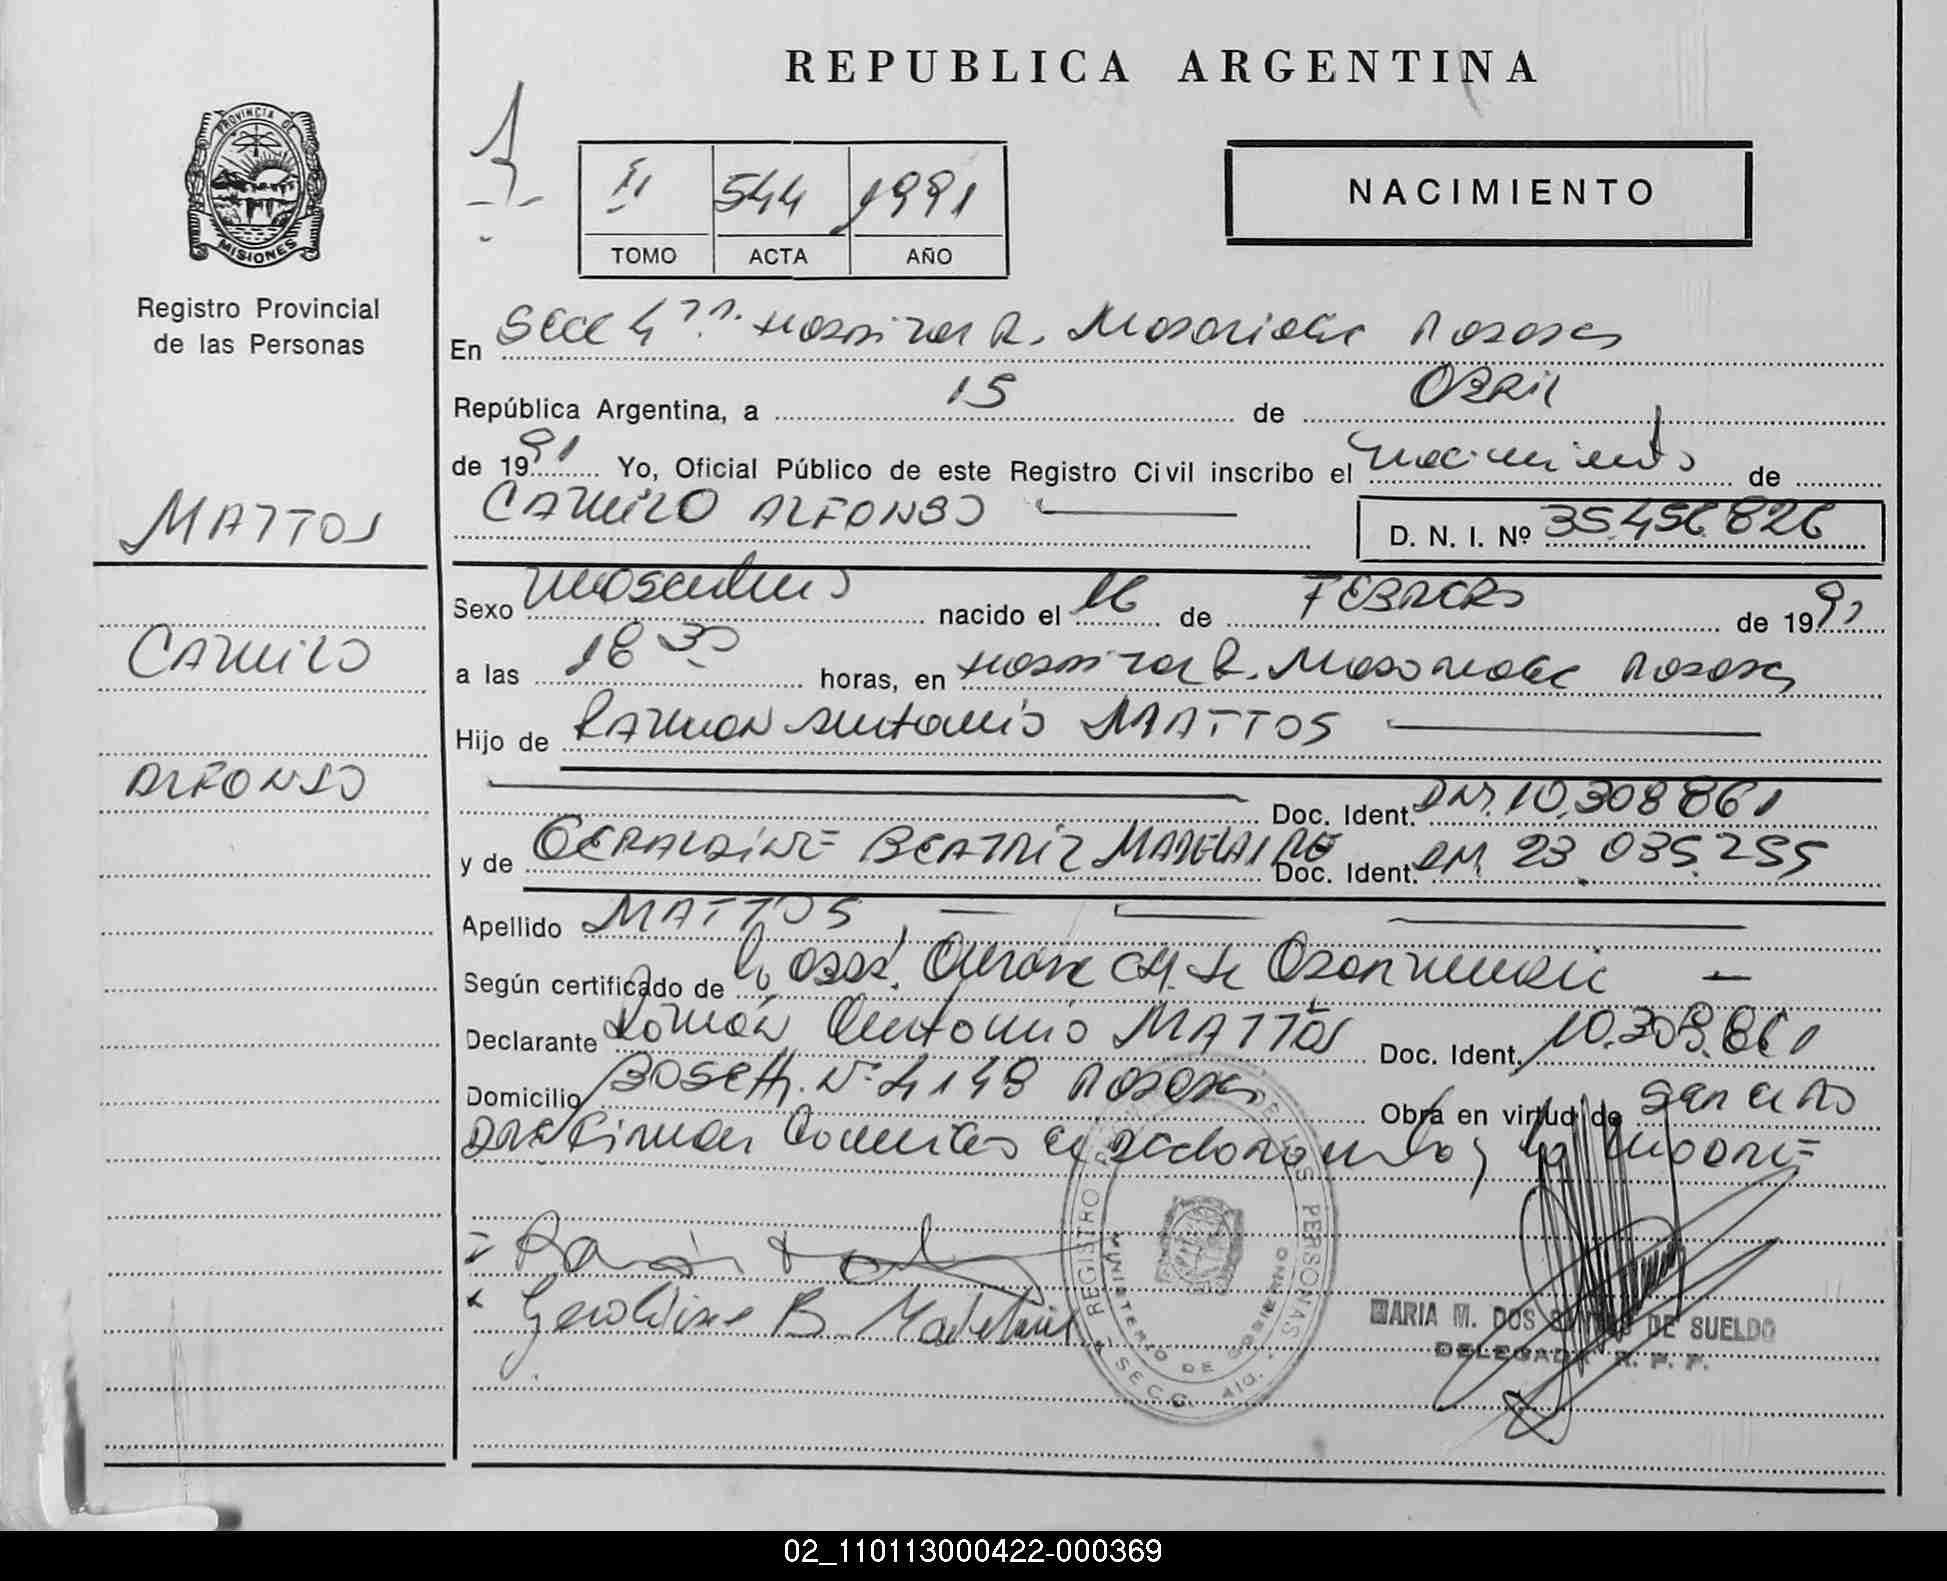 REPUBLICA ARGENTINA
PROVINCIA DE
MISIONES
Registro Provincial
de las Personas
II 544 1991
TOMO ACTA AÑO
NACIMIENTO
En Secc 4ta. Hospital R. Madariaga Posadas
República Argentina, a 15 de Abril
de 1991 Yo, Oficial Público de este Registro Civil inscribo el nacimiento de
CAMILO ALFONSO D. N. I. Nº 35.456.826
MATTOS
CAMILO
ALFONSO
Sexo masculino nacido el 16 de FEBRERO de 1991
a las 18 30 horas, en Hospital R. Madariaga Posadas
Hijo de RAMON Antonio MATTOS
Doc. Ident. DNI. 10.308.861
y de GERALDINE BEATRIZ MADELAIRE Doc. Ident. DNI. 23.035.255
Apellido MATTOS
Según certificado de la Obst.
Declarante Ramón Antonio MATTOS Doc. Ident. 10.308.861
Domicilio Nº 4148 Posadas Obra en virtud de ser el
Firman el declarante y la madre
Geraldine B. Madelaire
REGISTRO DE LAS PERSONAS
MINISTERIO DE GOBIERNO
SECC. 4ta.
MARIA M. DOS SANTOS DE SUELDO
DELEGADA R. P. P.
02_110113000422-000369